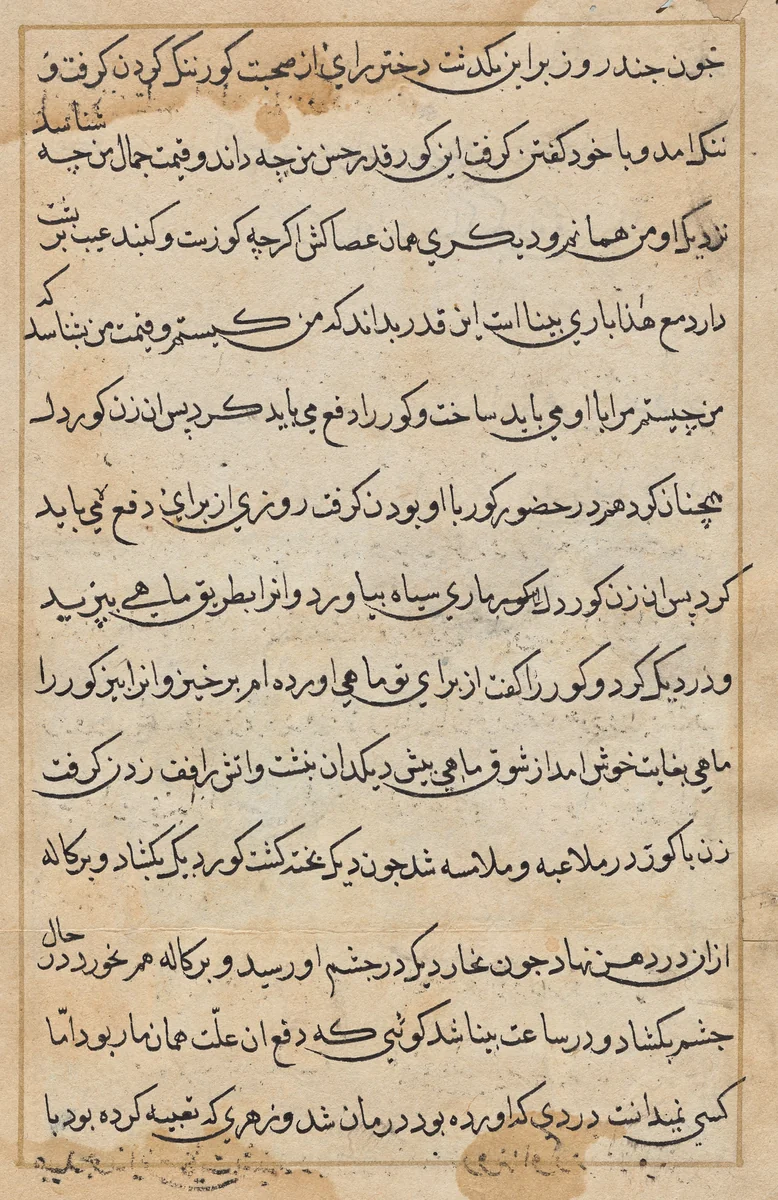 جون جند روز براین بکذشت دختر رای از صحبت کور ننک کردن کرفت و
ننک امد و با خود کفتن کرفت این کور قدر حسن من چه داند و قیمت جمال من چه شناسد
نزدیک او من همانم و دیکری همان عصاکش اکرچه کوزست و کنبد عیب بر پشت
دارد مع هذا باری بینا است این قدر بداند که من کیستم و قیمت من بشناسد که
من چیستم مرا با او می باید ساخت و کور را دفع می باید کرد پس ان زن کوردل
همچنان کرد هم در حضور کور با او بودن کرفت روزی از برای دفع می باید
کرد پس ان زن کوردل ماری سیاه بیاورد و انرا بطریق ماهی ببزید
و در دیک کرد و کور را کفت از برای تو ماهی اورده ام برخیز و انرا ببز کور را
ماهی بغایت خوش امد از شوق ماهی پیش دیکدان بنشت و اتش را فف زدن کرفت
زن با کوز در ملاعبه و ملامسه شد جون دیک پخته کشت کور دیک بکشاد و برکاله
ازان در دهن نهاد جون بخار دیک در جشم او رسید و برکاله هم بخورد در حال
جشم بکشاد و در ساعت بینا شد کوئی که دفع ان علّت همان مار بود امّا
کسی نمیدانت دردی که اورده بود درمان شد و زهری که تعبیه کرده بود با